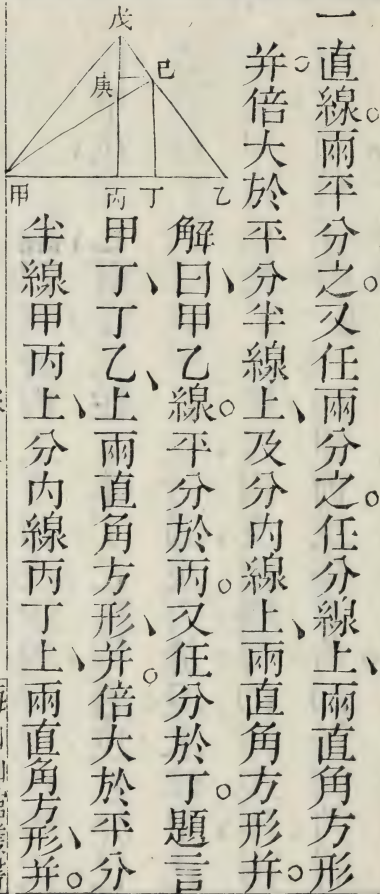 一直線。兩平分之。又任兩分之。任分線上、兩直角方形
并。倍大於平分半線上、及分內線上、兩直角方形并。
解曰、甲乙線。平分於丙。又任分於丁。題言
甲丁、丁乙、上兩直角方形、并。倍大於平分
半線甲丙上、分內線丙丁上、兩直角方形、并。
戊
己
庚
甲
丙
丁
乙